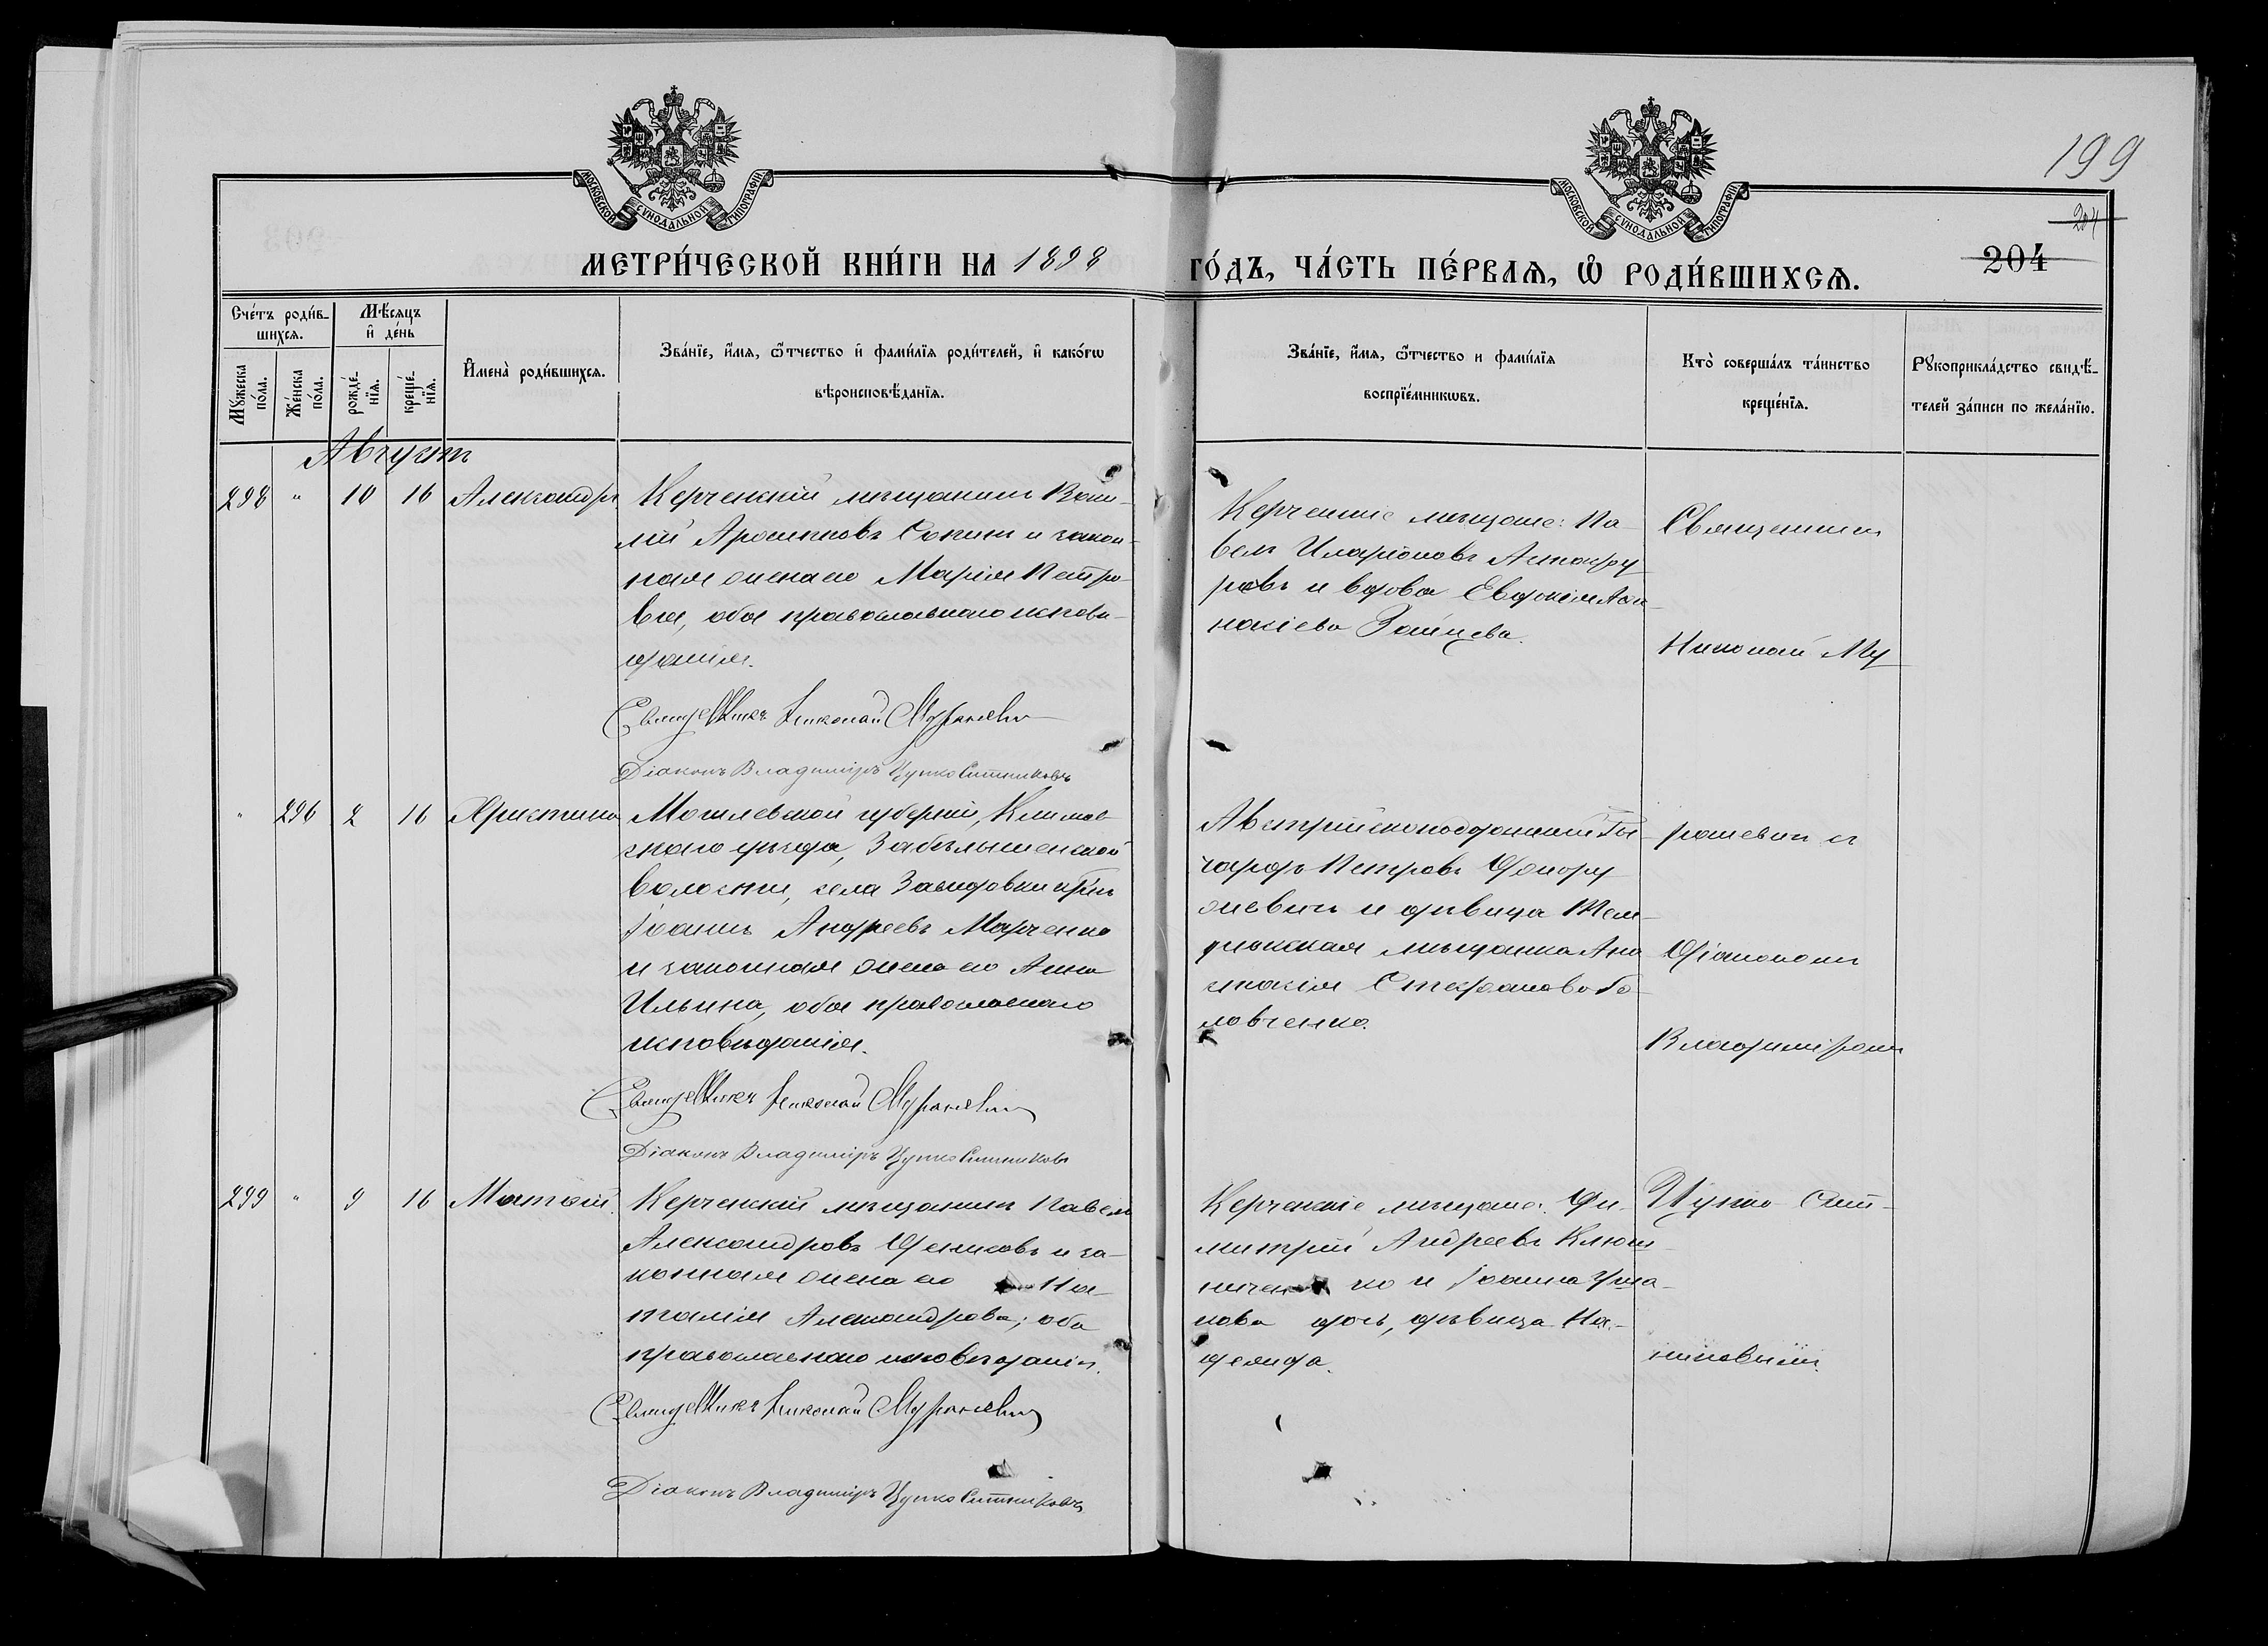 199
204
204
МОСКОВСКОЙ СѴНОДАЛЬНОЙ ТИПОГРАФІИ
МОСКОВСКОЙ СѴНОДАЛЬНОЙ ТИПОГРАФІИ
МЕТРИ́ЧЕСКОЙ КНИ́ГИ НА 1898 ГО́ДЪ, ЧА́СТЬ ПЕ́РВАЯ, Ѽ РОДИ́ВШИХСѦ.
Сче́тъ роди́в-
шихся.
Мѣ́сяцъ
и҆ де́нь
Мꙋ́жеска по́ла.
Же́нска по́ла.
рожде́-
нїѧ.
креще́-
нїѧ.
И҆мена̀ роди́вшихся.
Зва́нїе, и҆́мѧ, ѻ҆́тчество и҆ фами́лїѧ роди́телей, и҆ како́гѡ
вѣроисповѣ́данїѧ.
Зва́нїе, и҆́мѧ, ѻ҆́тчество и фами́лїѧ
воспрїе́мникѡвъ.
Кто̀ соверша́лъ та́инство
креще́нїѧ.
Рꙋкоприкла́дство свидѣ́-
телей за́писи по жела́нїю.
Августъ
298 " 10 16 Александръ
Керченскій мѣщанинъ Васи-
лій Сокинъ и закон-
ная жена его Марія Петро-
ва, оба православнаго исповѣ-
данія.
Священникъ Николай Мураневичъ
Діаконъ Владиміръ Цупко Ситниковъ
Керченскіе мѣщане: Па-
велъ Иларіоновъ
и вдова Евдокія Аѳа-
насіева Зайцева.
Священникъ
Николай Му
" 296 2 16 Христина
Могилевской губерніи, Климов-
скаго уѣзда, Забѣлышенской
волости, села кр-нъ
Іоаннъ Андреевъ Марченко
и законная жена его Анна
Ильина, оба православнаго
исповѣданія.
Священникъ Николай Мураневичъ
Діаконъ Владиміръ Цупко Ситниковъ
Австрійскоподданный Ри-
чардъ Петровъ
и дѣвица
мѣщанка Ана
стасія Стефанова Го-
ловченко.
раневичъ съ
Діакономъ
Владиміромъ
299 " 9 16 Матѳій.
Керченскій мѣщанинъ Павелъ
Александровъ Цениковъ и за-
конная жена его На-
талія Александрова; оба
православнаго исповѣданія.
Священникъ Николай Мураневичъ
Діаконъ Владиміръ Цупко Ситниковъ
Керченскіе мѣщане: Ди-
митрій Андреевъ Ключ-
ниченко и Іоанна Уша-
кова дочь, дѣвица На-
дежда.
Цупко-Сит-
никовымъ.